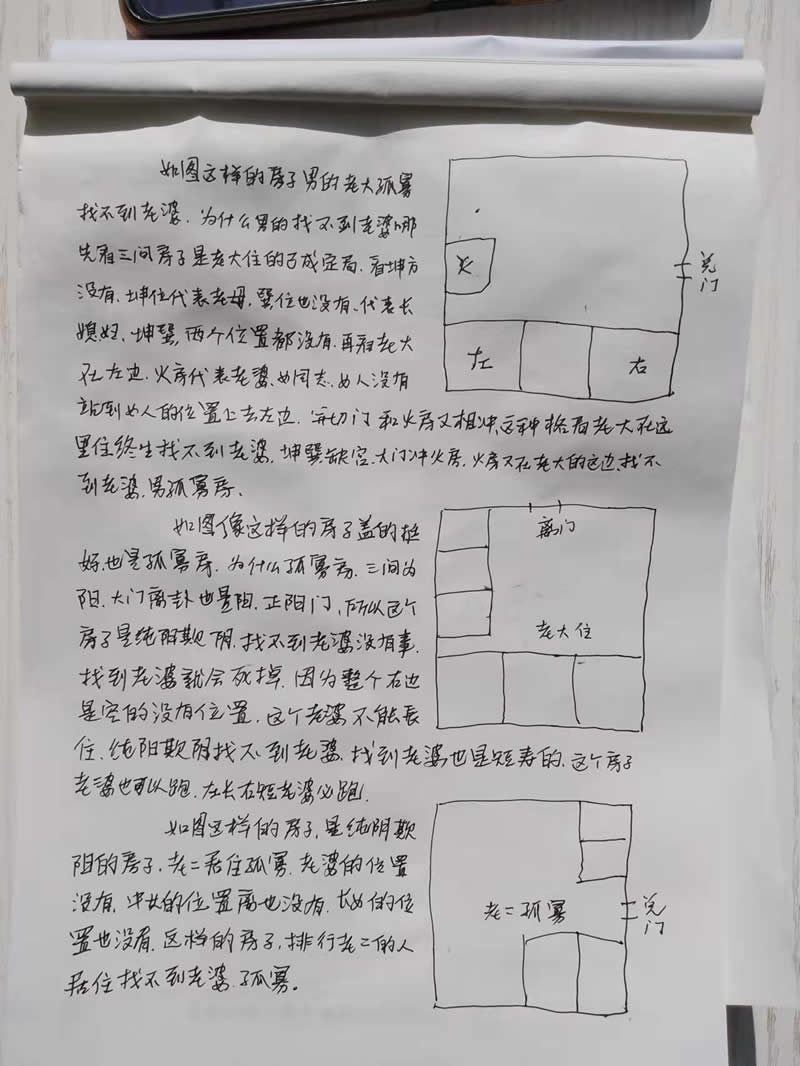 如图这样的房子男的老大孤寡
找不到老婆.为什么男的找不到老婆哪
先看三间房子是老大住的已成定局.看坤方
没有.坤位代表老母.巽位也没有.代表长
媳妇.坤巽,两个位置都没有.再看老大
在左边.火房代表老婆.女同志.女人没有
跑到女人的位置上去左边.每切门和火房又相冲.这种格局老大在这
里住终生找不到老婆.坤巽缺宫.大门冲火房.火房又在老大的这边.找不
到老婆.男孤寡房.
火
兑
门
左
右
如图像这样的房子盖的挺
好.也是孤寡房.为什么孤寡房.三间为
阳.大门离卦也是阳.正阳门,所以这个
房子是纯阳欺阴.找不到老婆没有事.
找到老婆就会死掉.因为整个右边
是空的没有位置.这个老婆不能长
住.纯阳欺阴找不到老婆.找到老婆也是短寿的.这个房子
老婆也可以跑.左长右短老婆必跑.
离门
老大住
如图这样的房子.是纯阴欺
阳的房子.老二居住孤寡.老婆的位置
没有.中女的位置离也没有.长女的位
置也没有.这样的房子,排行老二的人
居住找不到老婆.孤寡。
老二孤寡
兑
门